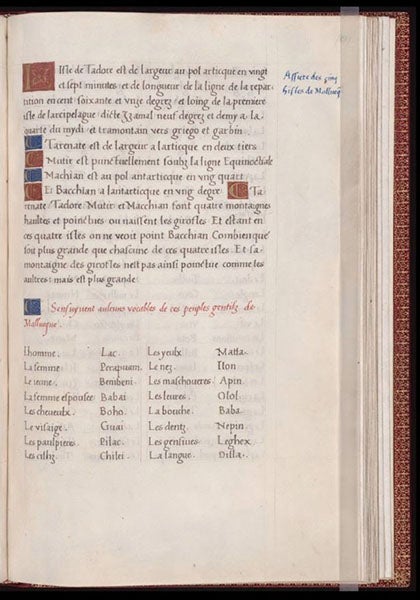 Lisle de Tadore est de largeur au pol articque en vingt
et sept minutes: et de longueur de la ligne de la repar
tition en cent soixante et vnze degrez: et loing de la premiere
isle de larcipelague: dicte Zzamal neuf degrez et demy a la
quarte du mydi et tramontain vers griego et garbin.
Tarenate est de largeur a lartieque en deux tiers
Mutir est punctuellement soubz la ligne Equinoctiale
Machian est au pol antarticque en vng quart
Et Bacchian a lantarticque en vng degre Ta
renate, Tadore, Mutir et Macchian sont quatre montaignes
haultes et poinctues ou naissent les girofles. Et estant en
ces quatre isles on ne veoit point Bacchian Combien que
soit plus grande que chascune de ces quatre isles. Et sa
montaigne des girofles nest pas ainsi poinctue comme les
aultres: mais est plus grande
Assiete des cinq
Isles de Mallucq
Sensuyuent aulcuns vocables de ces peuples gentilz de
Mallucque
Lhomme. Lac. Les yeulx. Matta.
La femme Perapuam. Le nez. Iton
Le ieune. Bembeni. Les maschoueres Apin
La femme espousee Babai Les leures. Olol.
Les cheueulx. Boho. La bouche. Baba
Le visaige. Guai Les dentz. Nepin
Les paulpieres. Pilac. Les gensiues Leghex.
Les cilhz. Chilei. La langue. Dilla.